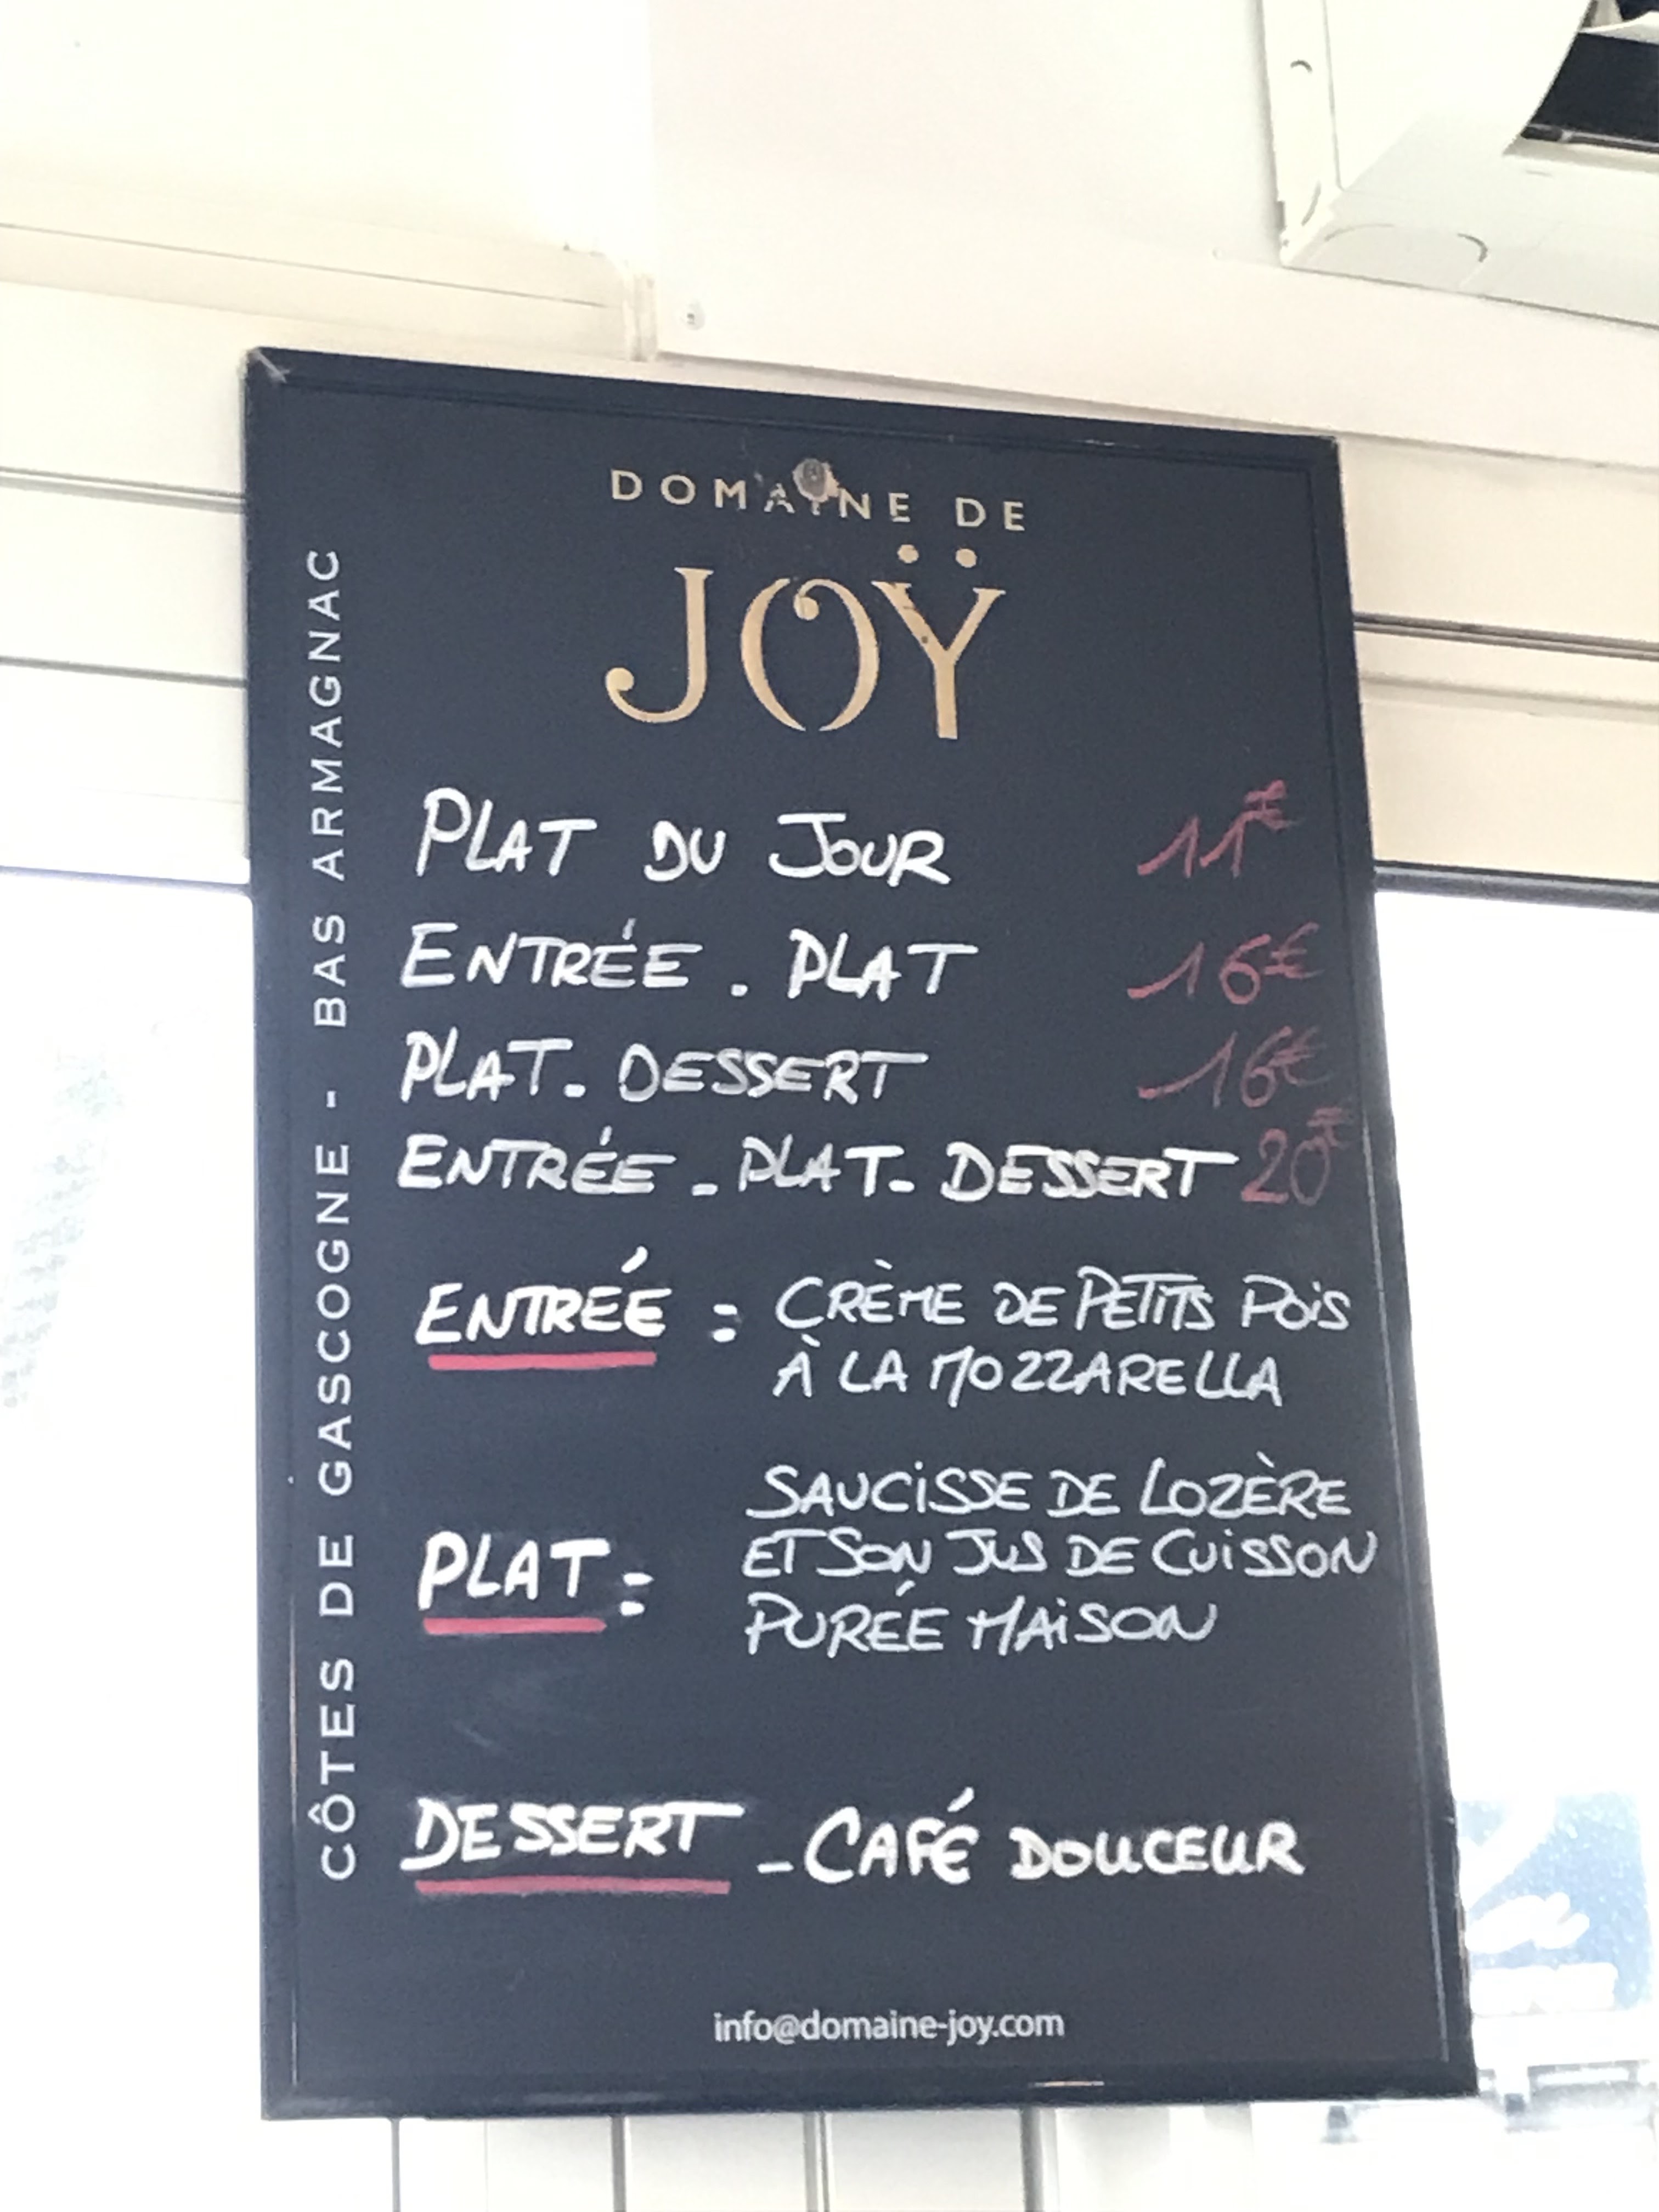 DOMAINE DE
JOŸ
CÔTES DE GASCOGNE - BAS ARMAGNAC
PLAT DU JOUR 11€
ENTRÉE . PLAT 16€
PLAT - DESSERT 16€
ENTRÉE - PLAT - DESSERT 20€
ENTRÉE : CRÈME DE PETITS POIS
À LA MOZZARELLA
SAUCISSE DE LOZÈRE
PLAT : ET SON JUS DE CUISSON
PURÉE MAISON
DESSERT - CAFÉ DOUCEUR
info@domaine-joy.com